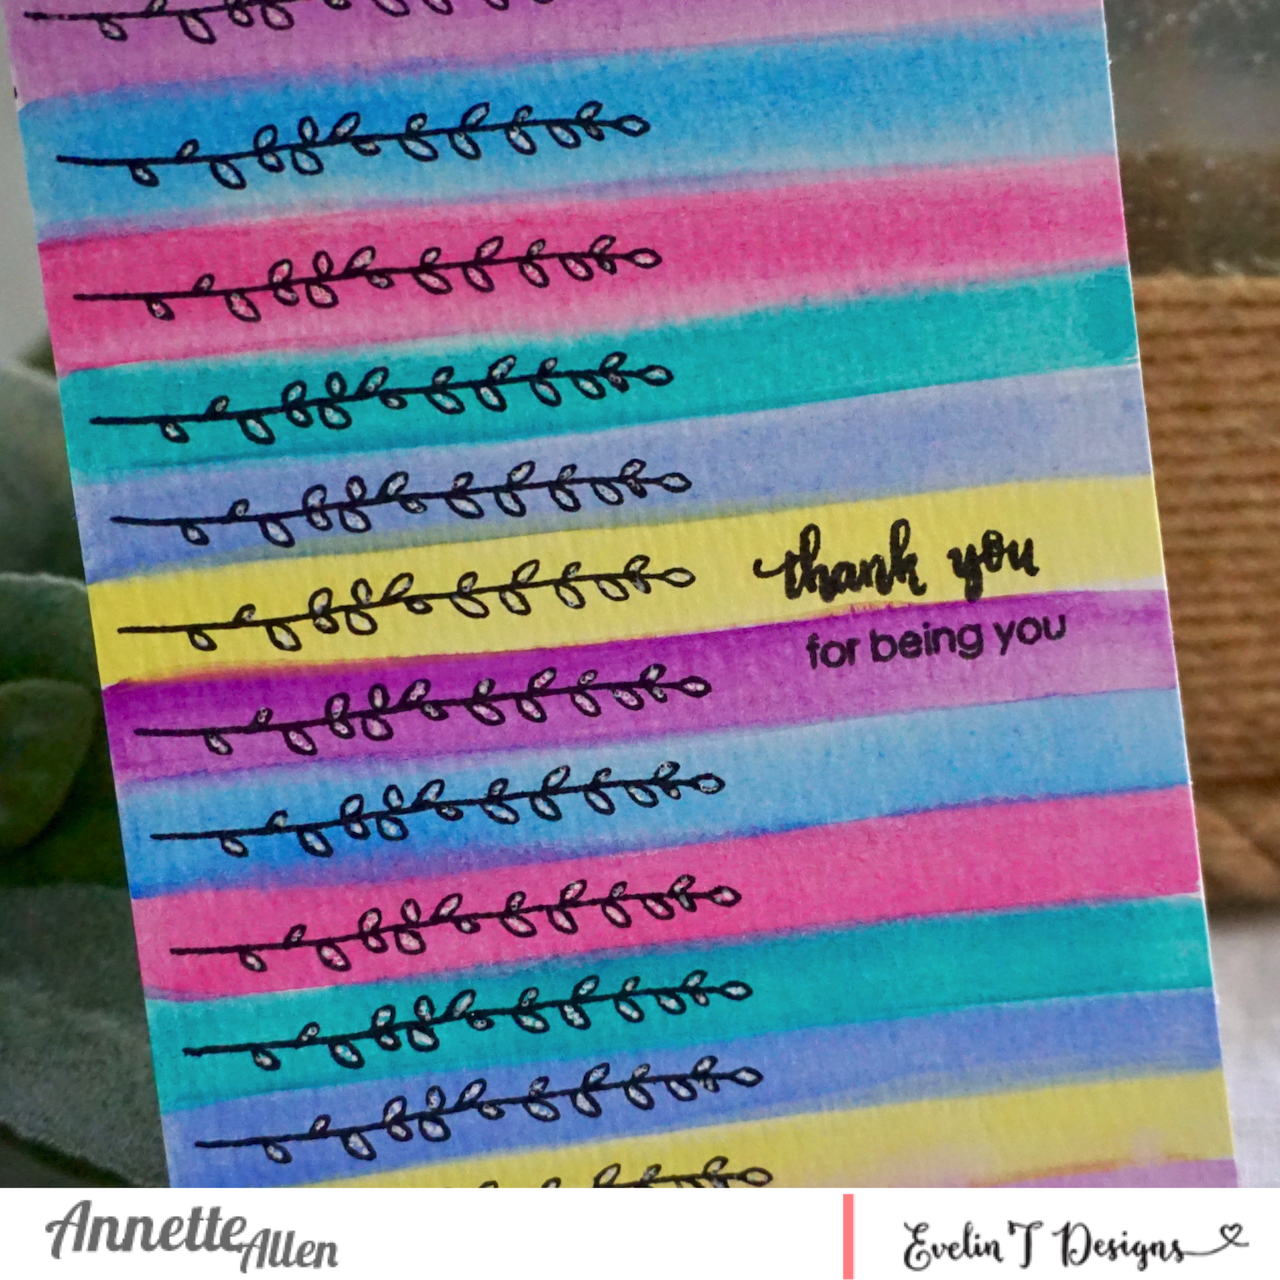 thank you
for being you
Annette Allen
Evelin T Designs